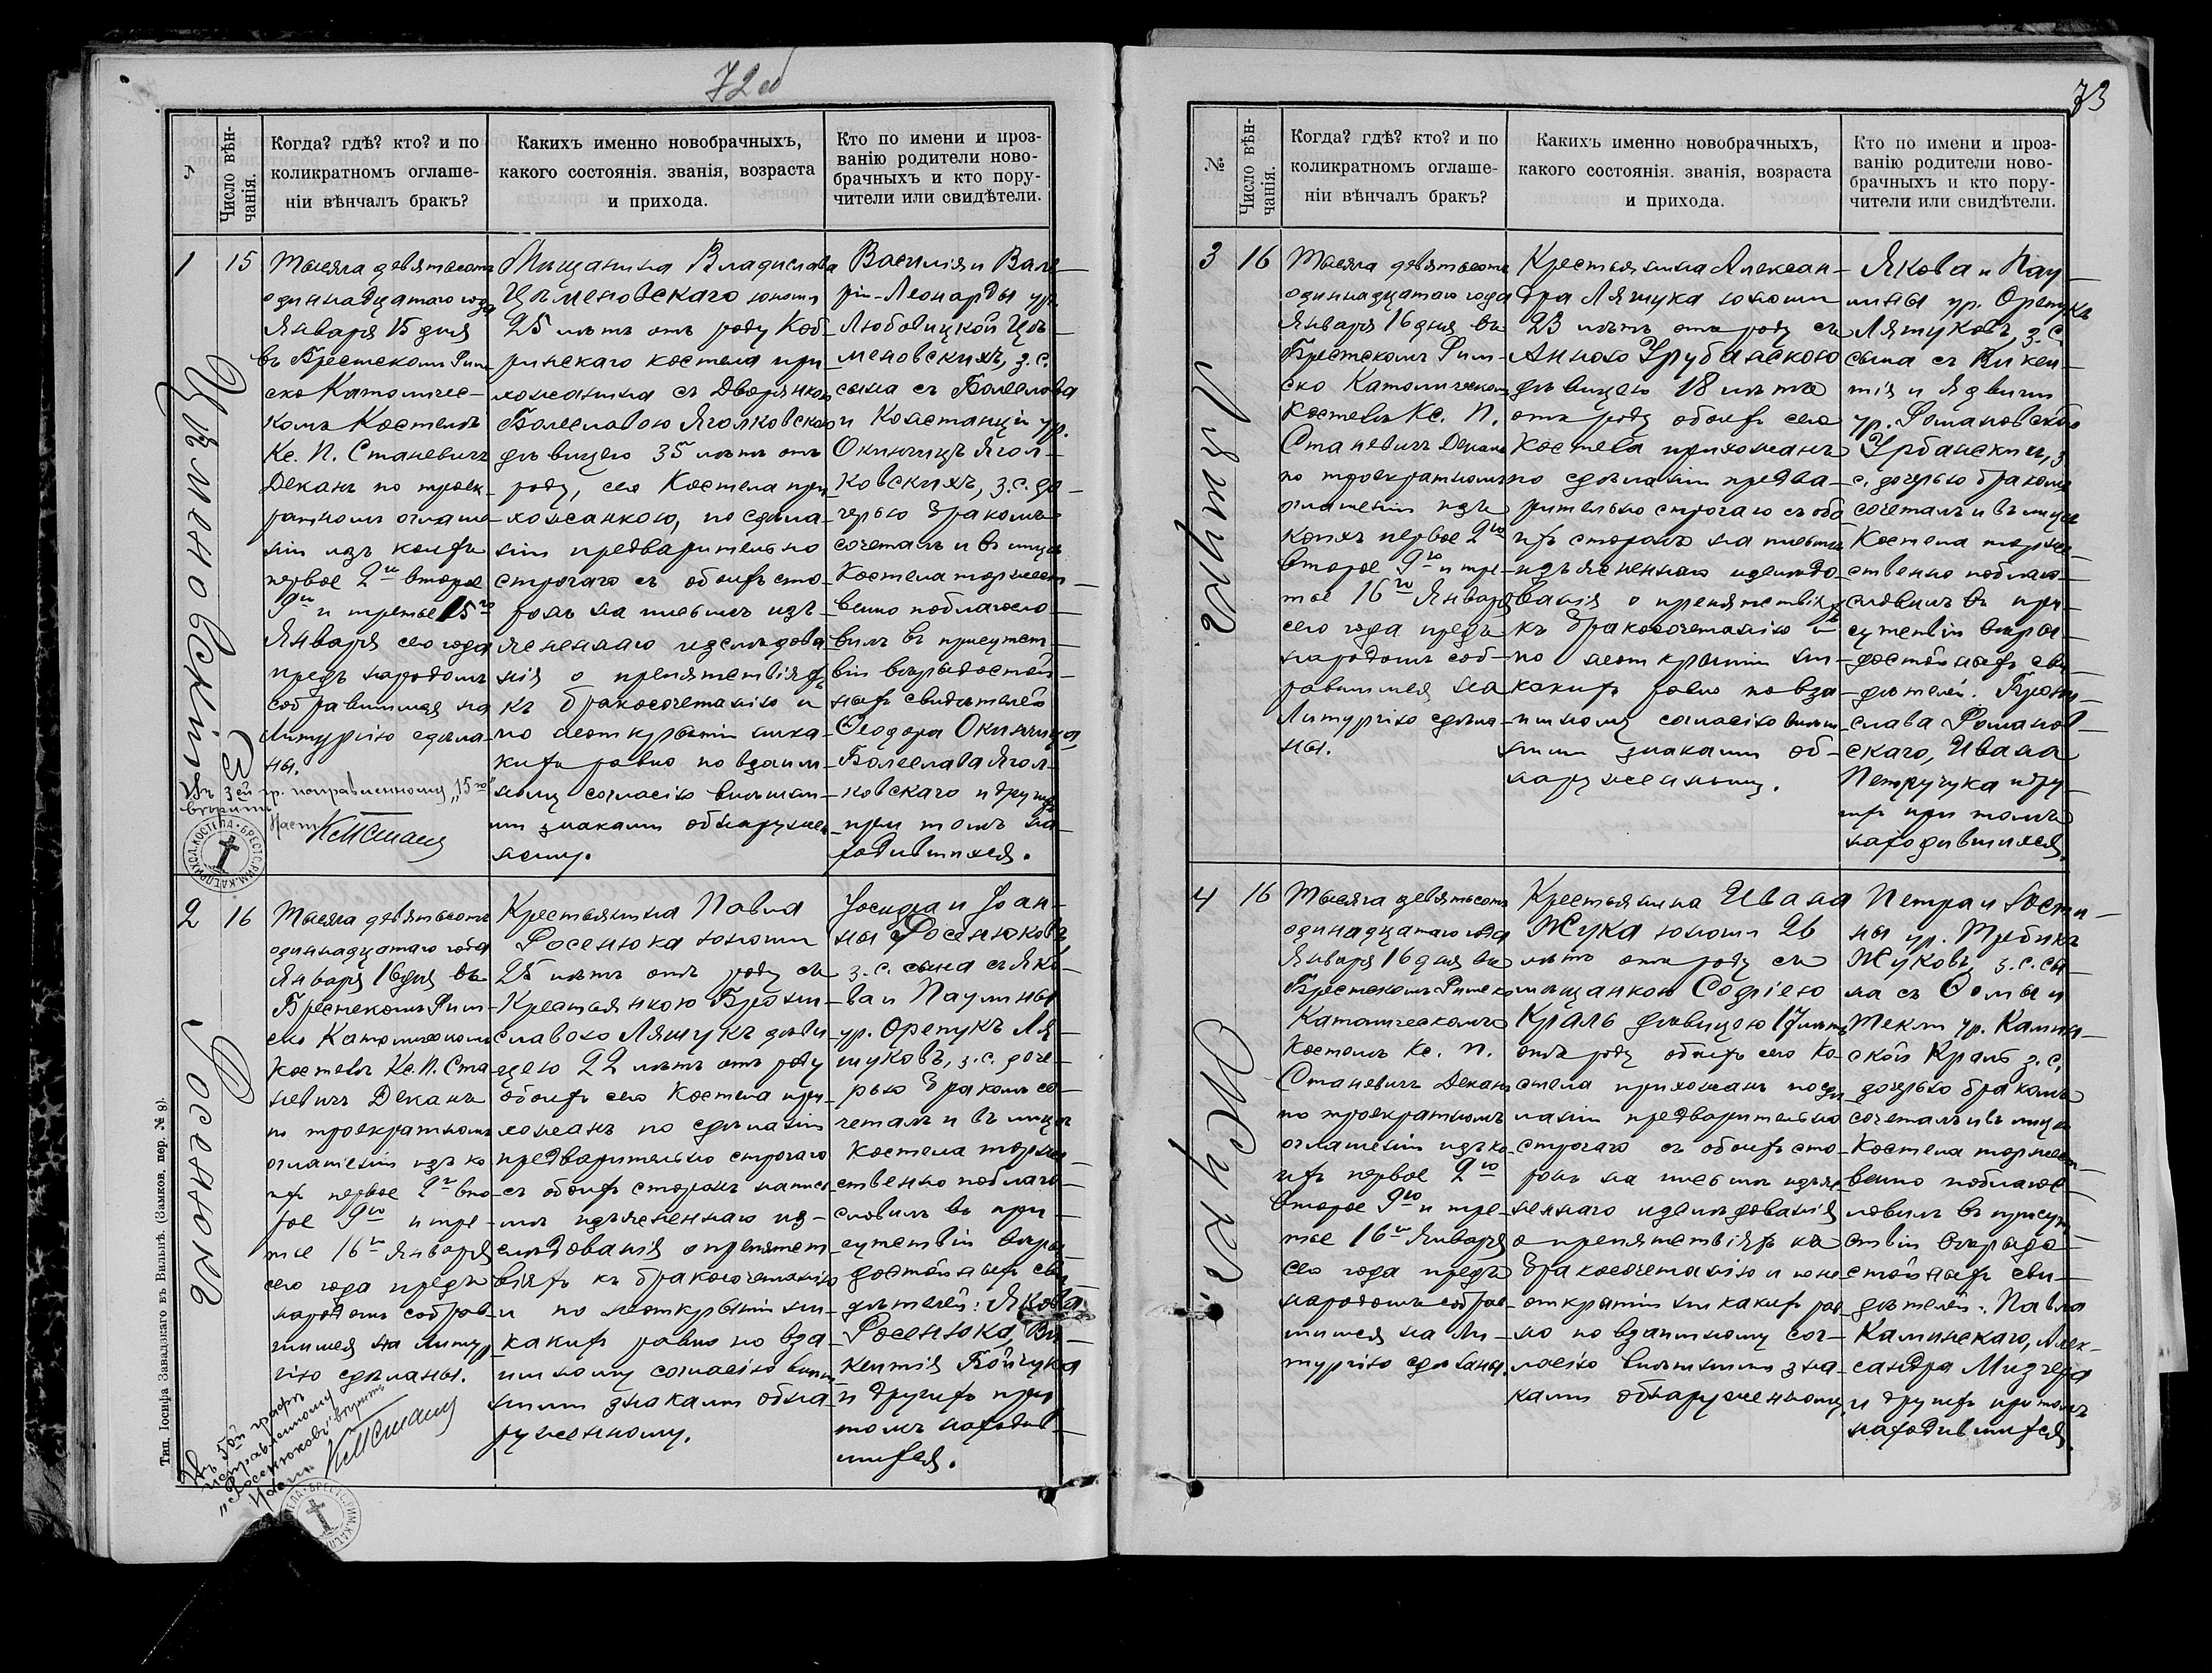 72об
№
Число вѣн-
чанія.
Когда? гдѣ? кто? и по
коликратномъ оглаше-
ніи вѣнчалъ бракъ?
Какихъ именно новобрачныхъ,
какого состоянія. званія, возраста
и прихода.
Кто по имени и проз-
ванію родители ново-
брачныхъ и кто пору-
чители или свидѣтели.
1
15
Цѣменовскій съ
Тысяча девятьсотъ
одиннадцатаго года
Января 15 дня
въ Брестскомъ Рим
ско Католичес-
комъ Костелѣ
Кс. П. Станевичъ
Деканъ по троек-
ратномъ оглаше-
ніи изъ коихъ
первое 2го второе
9го и третье 15го
Января сего года
предъ народомъ
собравшимся на
Литургію сдѣла-
ны.
Въ 3ей гр. исправленному „15го“
вѣрить
Наст. КсПСтанев
Мѣщанина Владислава
Цѣменовскаго юношу
25 лѣтъ отъ роду Коб-
ринскаго костела при-
хожанина съ Дворянкою
Болеславою Яголковскою
дѣвицею 35 лѣтъ отъ
роду, сего Костела при-
хожанкою, по сдѣла-
ніи предварительно
строгаго съ обоихъ сто-
ронъ на письмѣ изъ-
ясненнаго изслѣдова
нія о препятствіяхъ
къ бракосочетанію и
по неоткрытіи ника-
кихъ равно по взаим-
ному согласію внѣшни-
ми знаками обнаружен-
ному.
Василія и Вале-
ріи-Леонарды ур.
Любовицкой Цѣ-
меновскихъ, з. с.
сына съ Болеслава
и Констанціи ур.
Окинчицъ Ягол-
ковскихъ, з. с. до-
черью бракомъ
сочеталъ и въ лицѣ
Костела торжест-
венно поблагосло-
вилъ въ присутст-
віи вѣрыдостой-
ныхъ свидѣтелей
Ѳеодора Окинчица,
Болеслава Ягол-
ковскаго и другихъ
при томъ на-
ходившихся.
2
16
Росенюкъ
Тысяча девятьсотъ
одиннадцатаго года
Января 16 дня въ
Брестскомъ Рим-
ско Католическомъ
Костелѣ Кс. П. Ста
невичъ Деканъ
по троекратномъ
оглашеніи изъ ко
ихъ первое 2го вто
рое 9го и тре-
тье 16го Января
сего года предъ
народомъ собрав-
шимся на литур-
гію сдѣланы.
Въ 5ой графѣ
исправленному
„Росенюковъ“ вѣрить
Наст. КсПСтанев
Крестьянина Павла
Росенюка юношу
25 лѣтъ отъ роду съ
Крестьянкою Брони-
славою Ляшукъ дѣви
цею 22 лѣтъ отъ роду
обоихъ сего Костела при-
хожанъ по сдѣланіи
предварительно строгаго
съ обоихъ сторонъ на пись-
мѣ изъясненнаго из-
слѣдованія о препятст
віяхъ къ бракосочетанію
и по неоткрытіи ни-
какихъ равно по вза
имному согласію внѣш-
ними знаками обна
руженному.
Іосифа и Іоан-
ны Росенюковъ
з. с. сына съ Яко-
ва и Паулины
ур. Орепукъ Ля-
шуковъ, з. с. доче-
рью бракомъ со-
четалъ и въ лицѣ
Костела торже-
ственно поблаго-
словилъ въ при-
сутствіи вѣры-
достойныхъ сви-
дѣтелей: Якова
Росенюка, Ви-
кентія Бойчука
и другихъ при
томъ находив-
шихся.
Тип. Іосифа Завадзкаго въ Вильнѣ. (Замков. пер. № 8).
73
№
Число вѣн-
чанія.
Когда? гдѣ? кто? и по
коликратномъ оглаше-
ніи вѣнчалъ бракъ?
Какихъ именно новобрачныхъ,
какого состоянія. званія, возраста
и прихода.
Кто по имени и проз-
ванію родители ново-
брачныхъ и кто пору-
чители или свидѣтели.
3
16
Ляшукъ.
Тысяча девятьсотъ
одиннадцатаго года
Января 16 дня въ
Брестскомъ Рим-
ско Католическомъ
Костелѣ Кс. П.
Станевичъ Деканъ
по троекратномъ
оглашеніи изъ
коихъ первое 2го
второе 9го и тре-
тье 16го Января
сего года предъ
народомъ соб-
равшимся на
Литургію сдѣла-
ны.
Крестьянина Алексан-
дра Ляшука юношу
23 лѣтъ отъ роду съ
Анною Урубанскою
дѣвицею 18 лѣтъ
отъ роду обоихъ сего
Костела прихожанъ
по сдѣланіи предва-
рительно строгаго съ обо
ихъ сторонъ на письмѣ
изъясненнаго изслѣдо-
ванія о препятствіяхъ
къ бракосочетанію и
по неоткрытіи ни-
какихъ равно по вза
имному согласію внѣш-
ними знаками об-
наруженному.
Якова и Пау-
лины ур. Орепукъ
Ляшуковъ, з. с.
сына съ Викен-
тія и Ядвиги
ур. Романовской
Урбанскихъ, з.
с. дочерью бракомъ
сочеталъ и въ лицѣ
Костела торже-
ственно поблаго-
словилъ въ при-
сутствіи вѣры-
достойныхъ сви-
дѣтелей: Брони-
слава Романов-
скаго, Ивана
Петручука и дру-
гихъ при томъ
находившихся.
4
16
Жукъ.
Тысяча девятьсотъ
одинадцатаго года
Января 16 дня въ
Брестскомъ Римско
Католическомъ
Костелѣ Кс. П.
Станевичъ Деканъ
по троекратномъ
оглашеніи изъ ко-
ихъ первое 2го
второе 9го и тре-
тье 16го Января
сего года предъ
народомъ собрав-
шимся на Ли-
тургію сдѣланы.
Крестьянина Ивана
Жука юношу 26
лѣтъ отъ роду съ
мѣщанкою Софіею
Краль дѣвицею 17 лѣтъ
отъ роду обоихъ сего Ко-
стела прихожанъ по сдѣ-
ланіи предварительно
строгаго съ обоихъ сто-
ронъ на письмѣ изъяс-
неннаго изслѣдованія
о препятствіяхъ къ
бракосочетанію и по не
открытіи никакихъ рав-
но по взаимному сог-
ласію внѣшними зна-
ками обнаруженному.
Петра и Юсти-
ны ур. Требикъ
Жуковъ, з. с. сы-
на съ Ѳомы и
Теклы ур. Камин-
ской Краль з. с.
дочерью бракомъ
сочеталъ и въ лицѣ
Костела торжест-
венно поблагос-
ловилъ въ присут-
ствіи вѣрыдо-
стойныхъ сви-
дѣтелей: Павла
Каминскаго, Алек-
сандра Мидзера
и другихъ при томъ
находившихся.